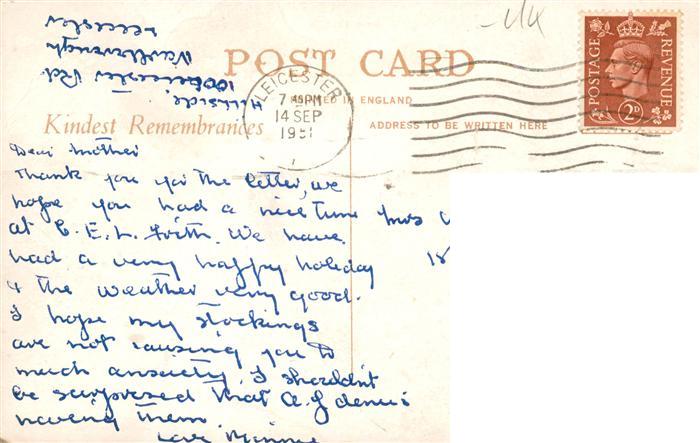 Hillside,
100 Leicester Rd.
Narborough
Leicester
POST CARD
PRINTED IN ENGLAND
Kindest Remembrances
ADDRESS TO BE WRITTEN HERE
LEICESTER
7 45 PM
14 SEP
1951
POSTAGE
REVENUE
2D
Dear Mother
Thank you for the letter, we
hope you had a nice time
at C. E. L. with. We have
had a very happy holiday
& the weather very good.
I hope my stockings
are not causing you to
much anxiety. I shouldn't
be surprised that A. G denies
having them.
Love Minnie
Mrs
18